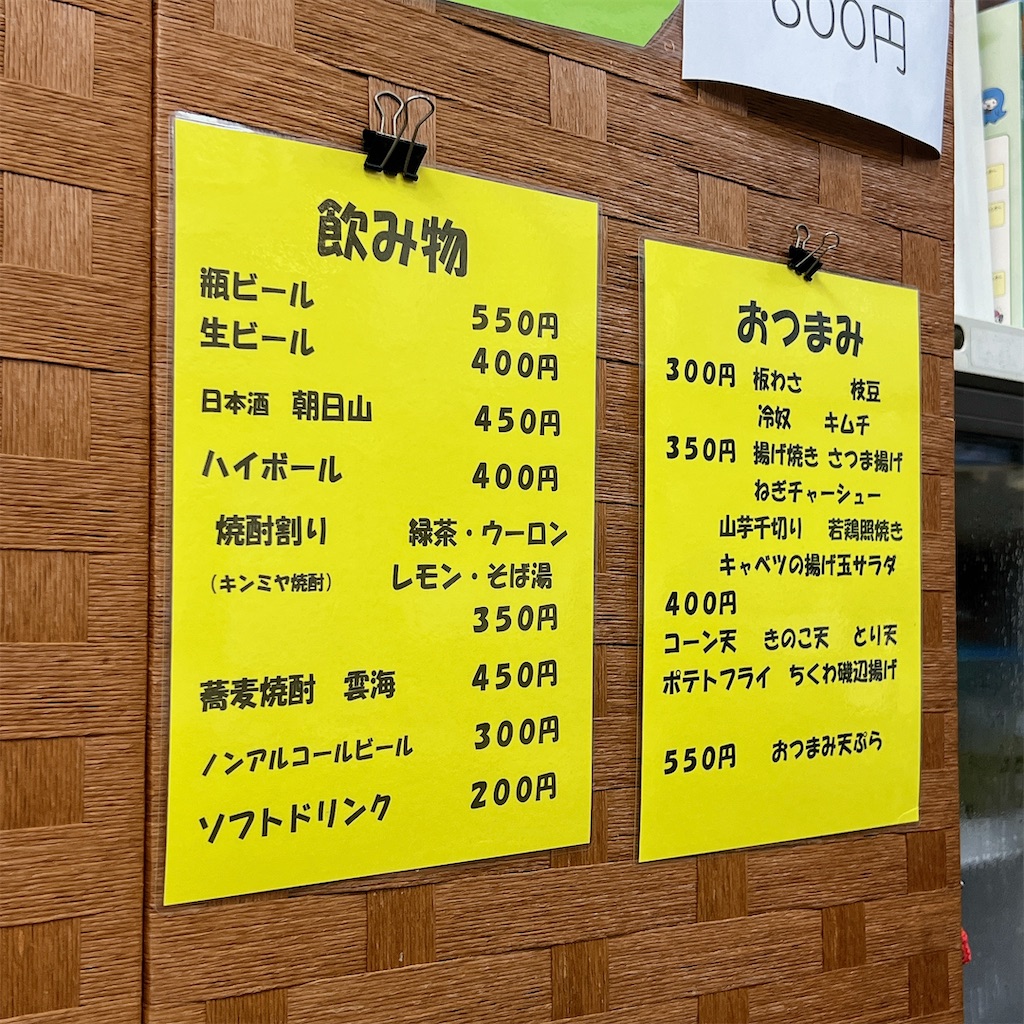 600円
飲み物
瓶ビール 550円
生ビール 400円
日本酒 朝日山 450円
ハイボール 400円
焼酎割り 緑茶・ウーロン
(キンミヤ焼酎) レモン・そば湯
350円
蕎麦焼酎 雲海 450円
ノンアルコールビール 300円
ソフトドリンク 200円
おつまみ
300円 板わさ 枝豆
冷奴 キムチ
350円 揚げ焼き さつま揚げ
ねぎチャーシュー
山芋千切り 若鶏照焼き
キャベツの揚げ玉サラダ
400円
コーン天 きのこ天 とり天
ポテトフライ ちくわ磯辺揚げ
550円 おつまみ天ぷら